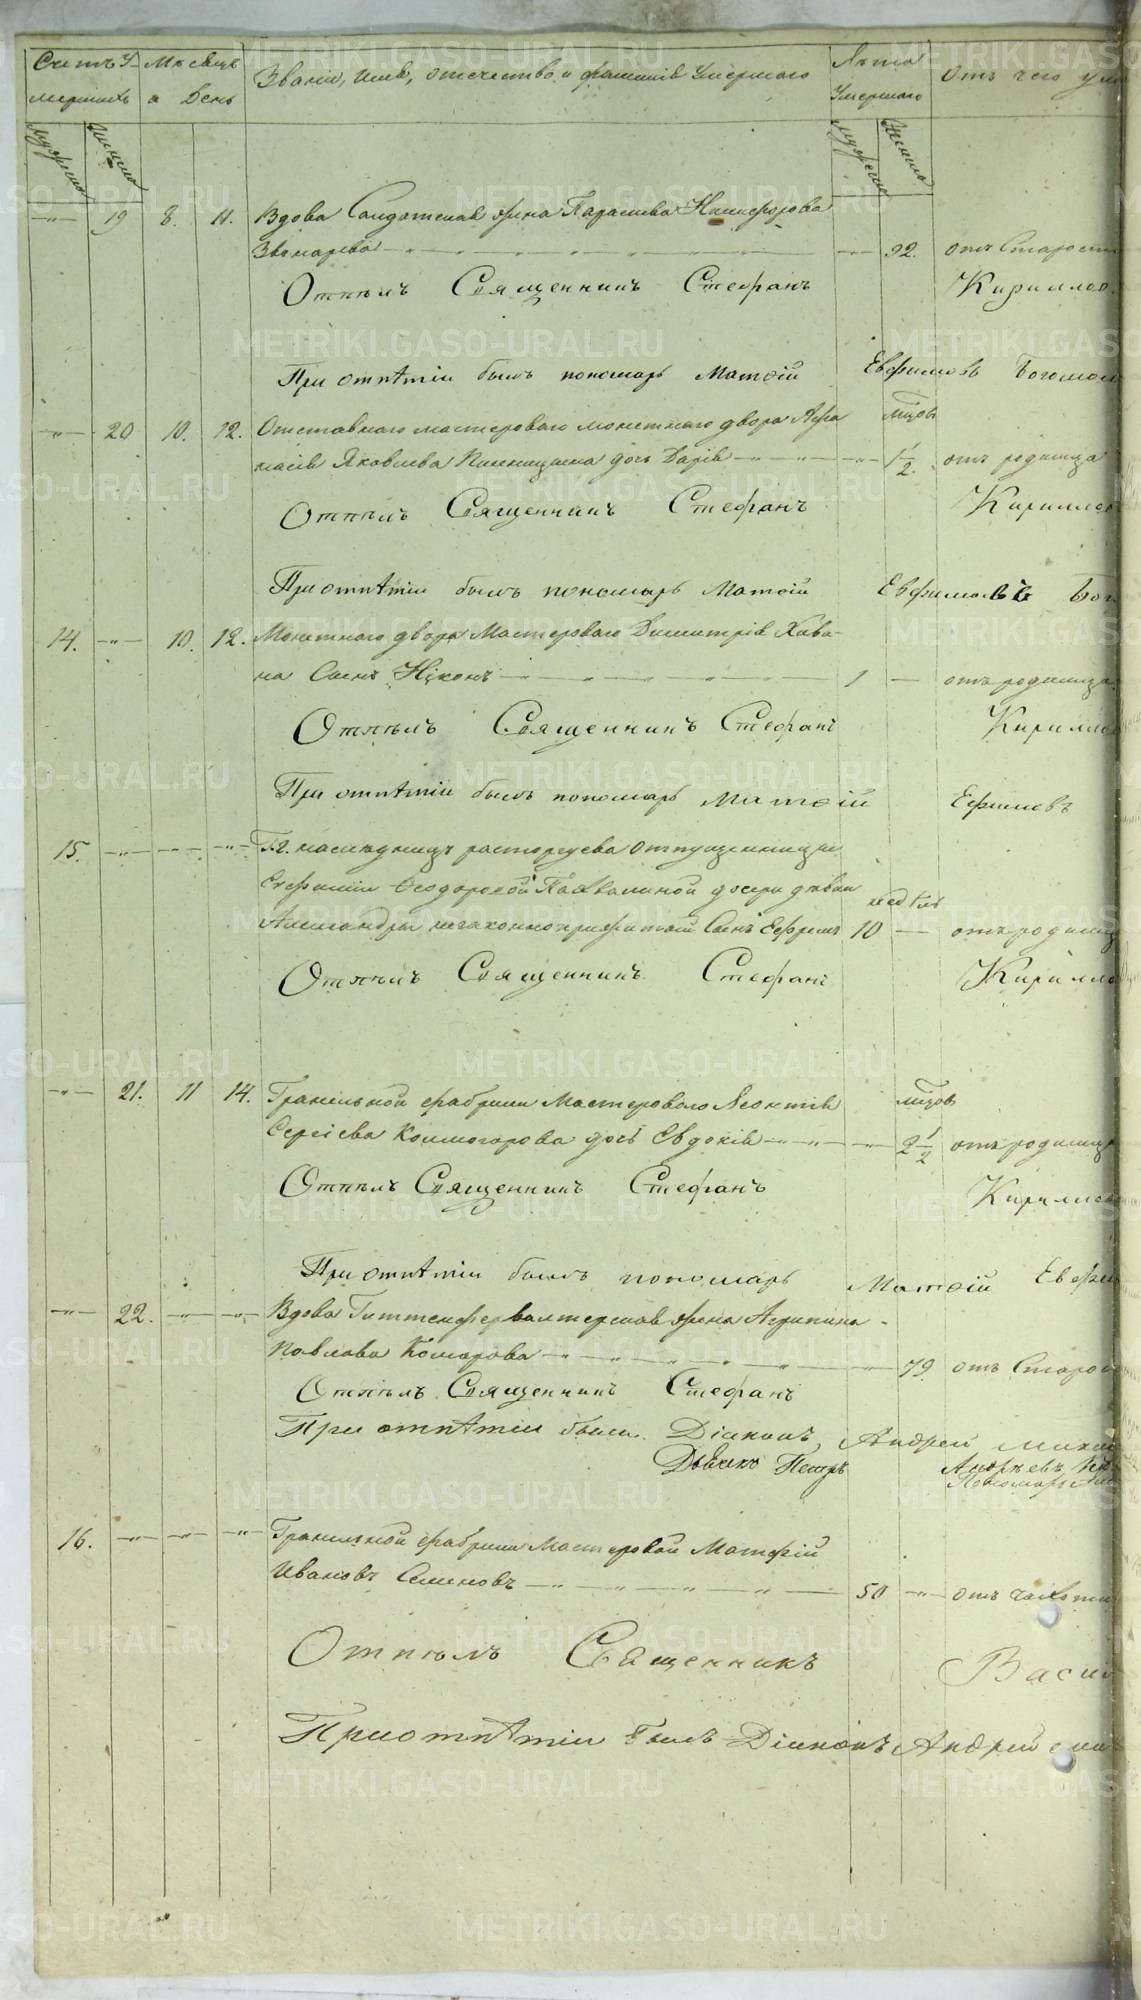 Счетъ У- Мѣсяцъ Званіе, имя, отечество, и фамилія Умершаго Лѣта Отъ чего уме
мершихъ и День Умершаго
мужеска женска мужеска женска
—"— 19 8. 11. Вдова Солдатская жена Параскева Никифорова
Звонарева —"— 92. отъ Старости
Отпѣлъ Священникъ Стефанъ Кириллов
При отпѣтіи былъ пономарь Матѳій Евфимовъ Богомол
—"— 20 10. 12. Отставнаго мастероваго монетнаго двора Афа мцовъ
насія Яковлева дочь Дарія —"— 1 1/2. отъ родимца
Отпѣлъ Священникъ Стефанъ Кириллов
При отпѣтіи былъ пономарь Матѳій Евфимовъ Бог
14. —"— 10. 12. Монетнаго двора Мастероваго Димитрія Хава-
на Сынъ Никонъ —"— 1 — отъ родимца
Отпѣлъ Священникъ Стефанъ Кириллов
При отпѣтіи былъ пономарь Матѳій Ефимовъ
15. —"— —"— —"— Гг. наслѣдницъ расторгуева отпущенницы
Ѳеодоровой дочери дѣвки недѣль
Александры незаконноприжитой Сынъ Ефремъ 10 — отъ родимц
Отпѣлъ Священникъ Стефанъ Кирилло
—"— 21. 11 14. Гранильной фабрики Мастероваго Леонтія мцовъ
Сергіева Колмогорова дочь Евдокія —"— 2 1/2 отъ родимц
Отпѣлъ Священникъ Стефанъ Кириллов
При отпѣтіи былъ пономарь Матѳій Евфи
—"— 22. —"— —"— Вдова Гиттенфервалтерская жена Агрипина
Павлова Комарова —"— 79. отъ Старос
Отпѣлъ Священникъ Стефанъ
При отпѣтіи были. Діаконъ, Андрей
Дьячко Петръ Андреевъ
Пономарь
16. —"— —"— —"— Гранильной фабрики Мастеровой Матфій
Ивановъ Семеновъ —"— 50 —"— отъ чахотки
Отпѣлъ Священникъ Васил
При отпѣтіи былъ Діаконъ Андрей
METRIKI.GASO-URAL.RU